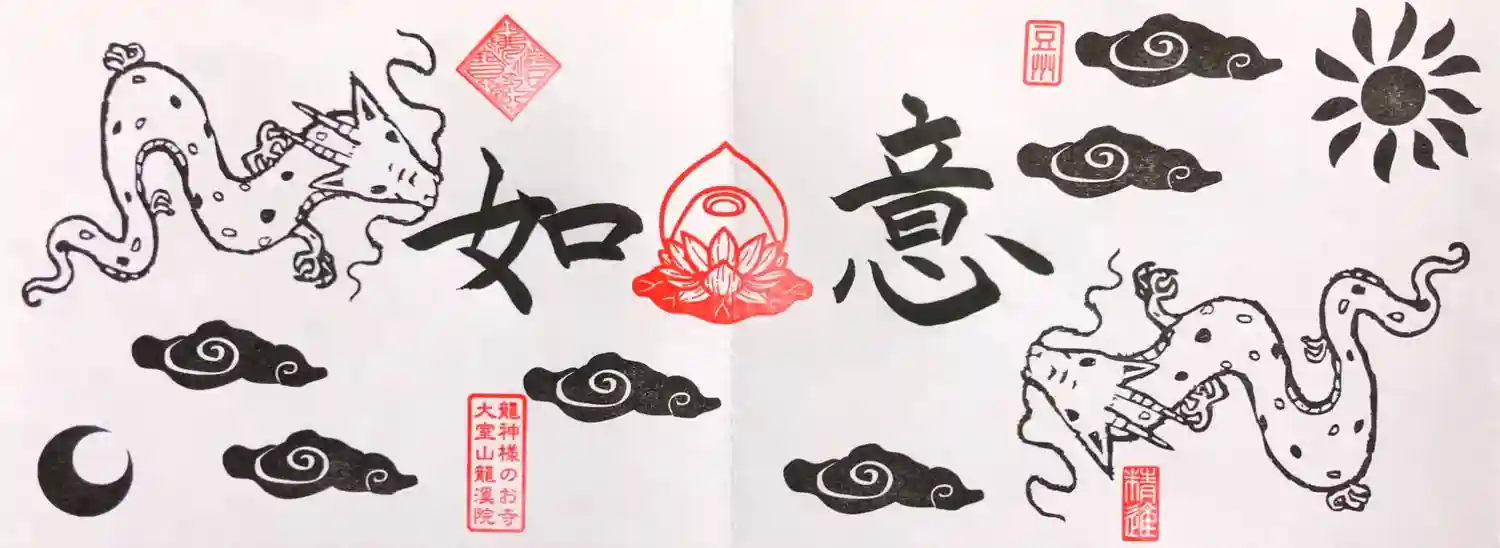 豆州
意
如
精進
龍神様のお寺
大室山龍溪院